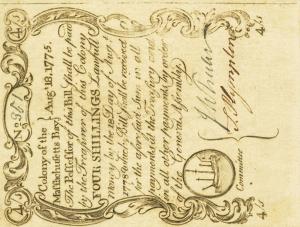 4/s 4/s
No 961
Colony of the } Aug 18, 1775.
Massachusetts Bay
The Possessor of this Bill shall be paid
by the Treasurer of this Colony
FOUR SHILLINGS Lawfull
Money by the Day of Aug
1778 which Bill shall be received
for the aforesaid Sum in all
payments at the Treasury and
in all other payments by order
of the General Assembly
Committee
4/s 4/s